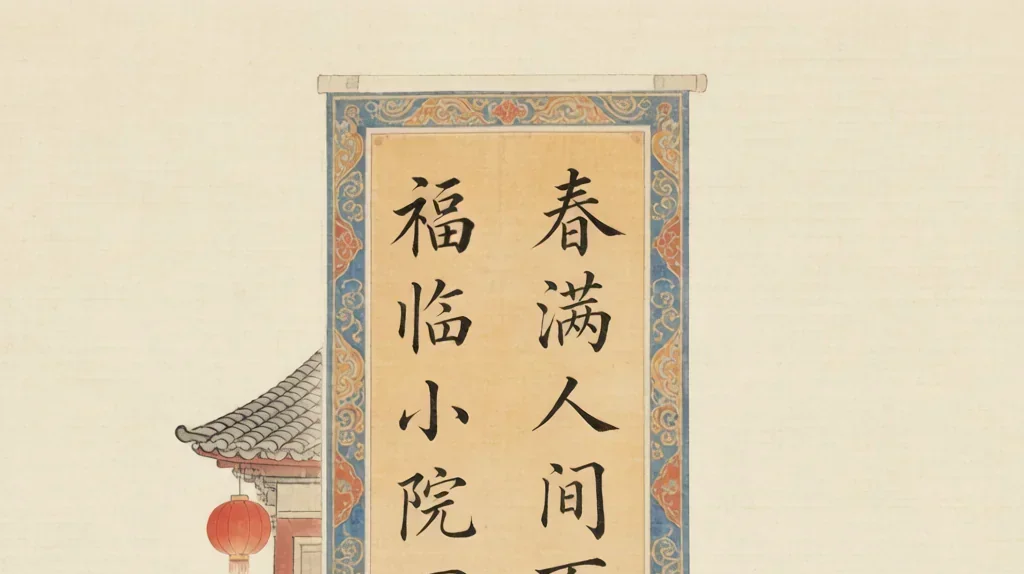 春满人间
福临小院